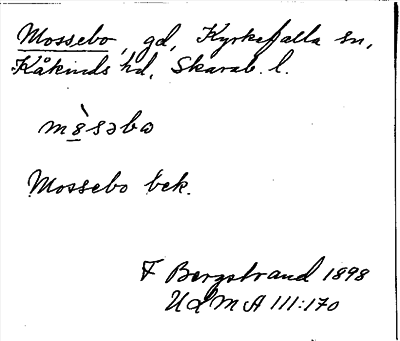 Mossebo, gd, Kyrkefalla sn,
Kåkinds hd, Skarab. l.
mòsəbo
Mossebo bek.
F Bergstrand 1898
UdMA III:170